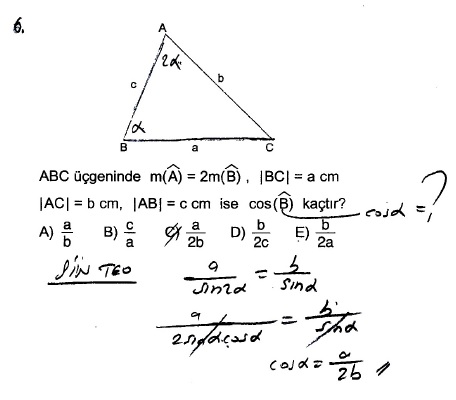 6.
A
2α
c
b
α
B
a
C
ABC üçgeninde m(Â) = 2m(B̂) , |BC| = a cm
|AC| = b cm, |AB| = c cm ise cos(B̂) kaçtır?
cosα = ?
A) a/b B) c/a C) a/2b D) b/2c E) b/2a
SİN TEO
a/sin2α = b/sinα
a/2sinαcosα = b/sinα
cosα = a/2b //